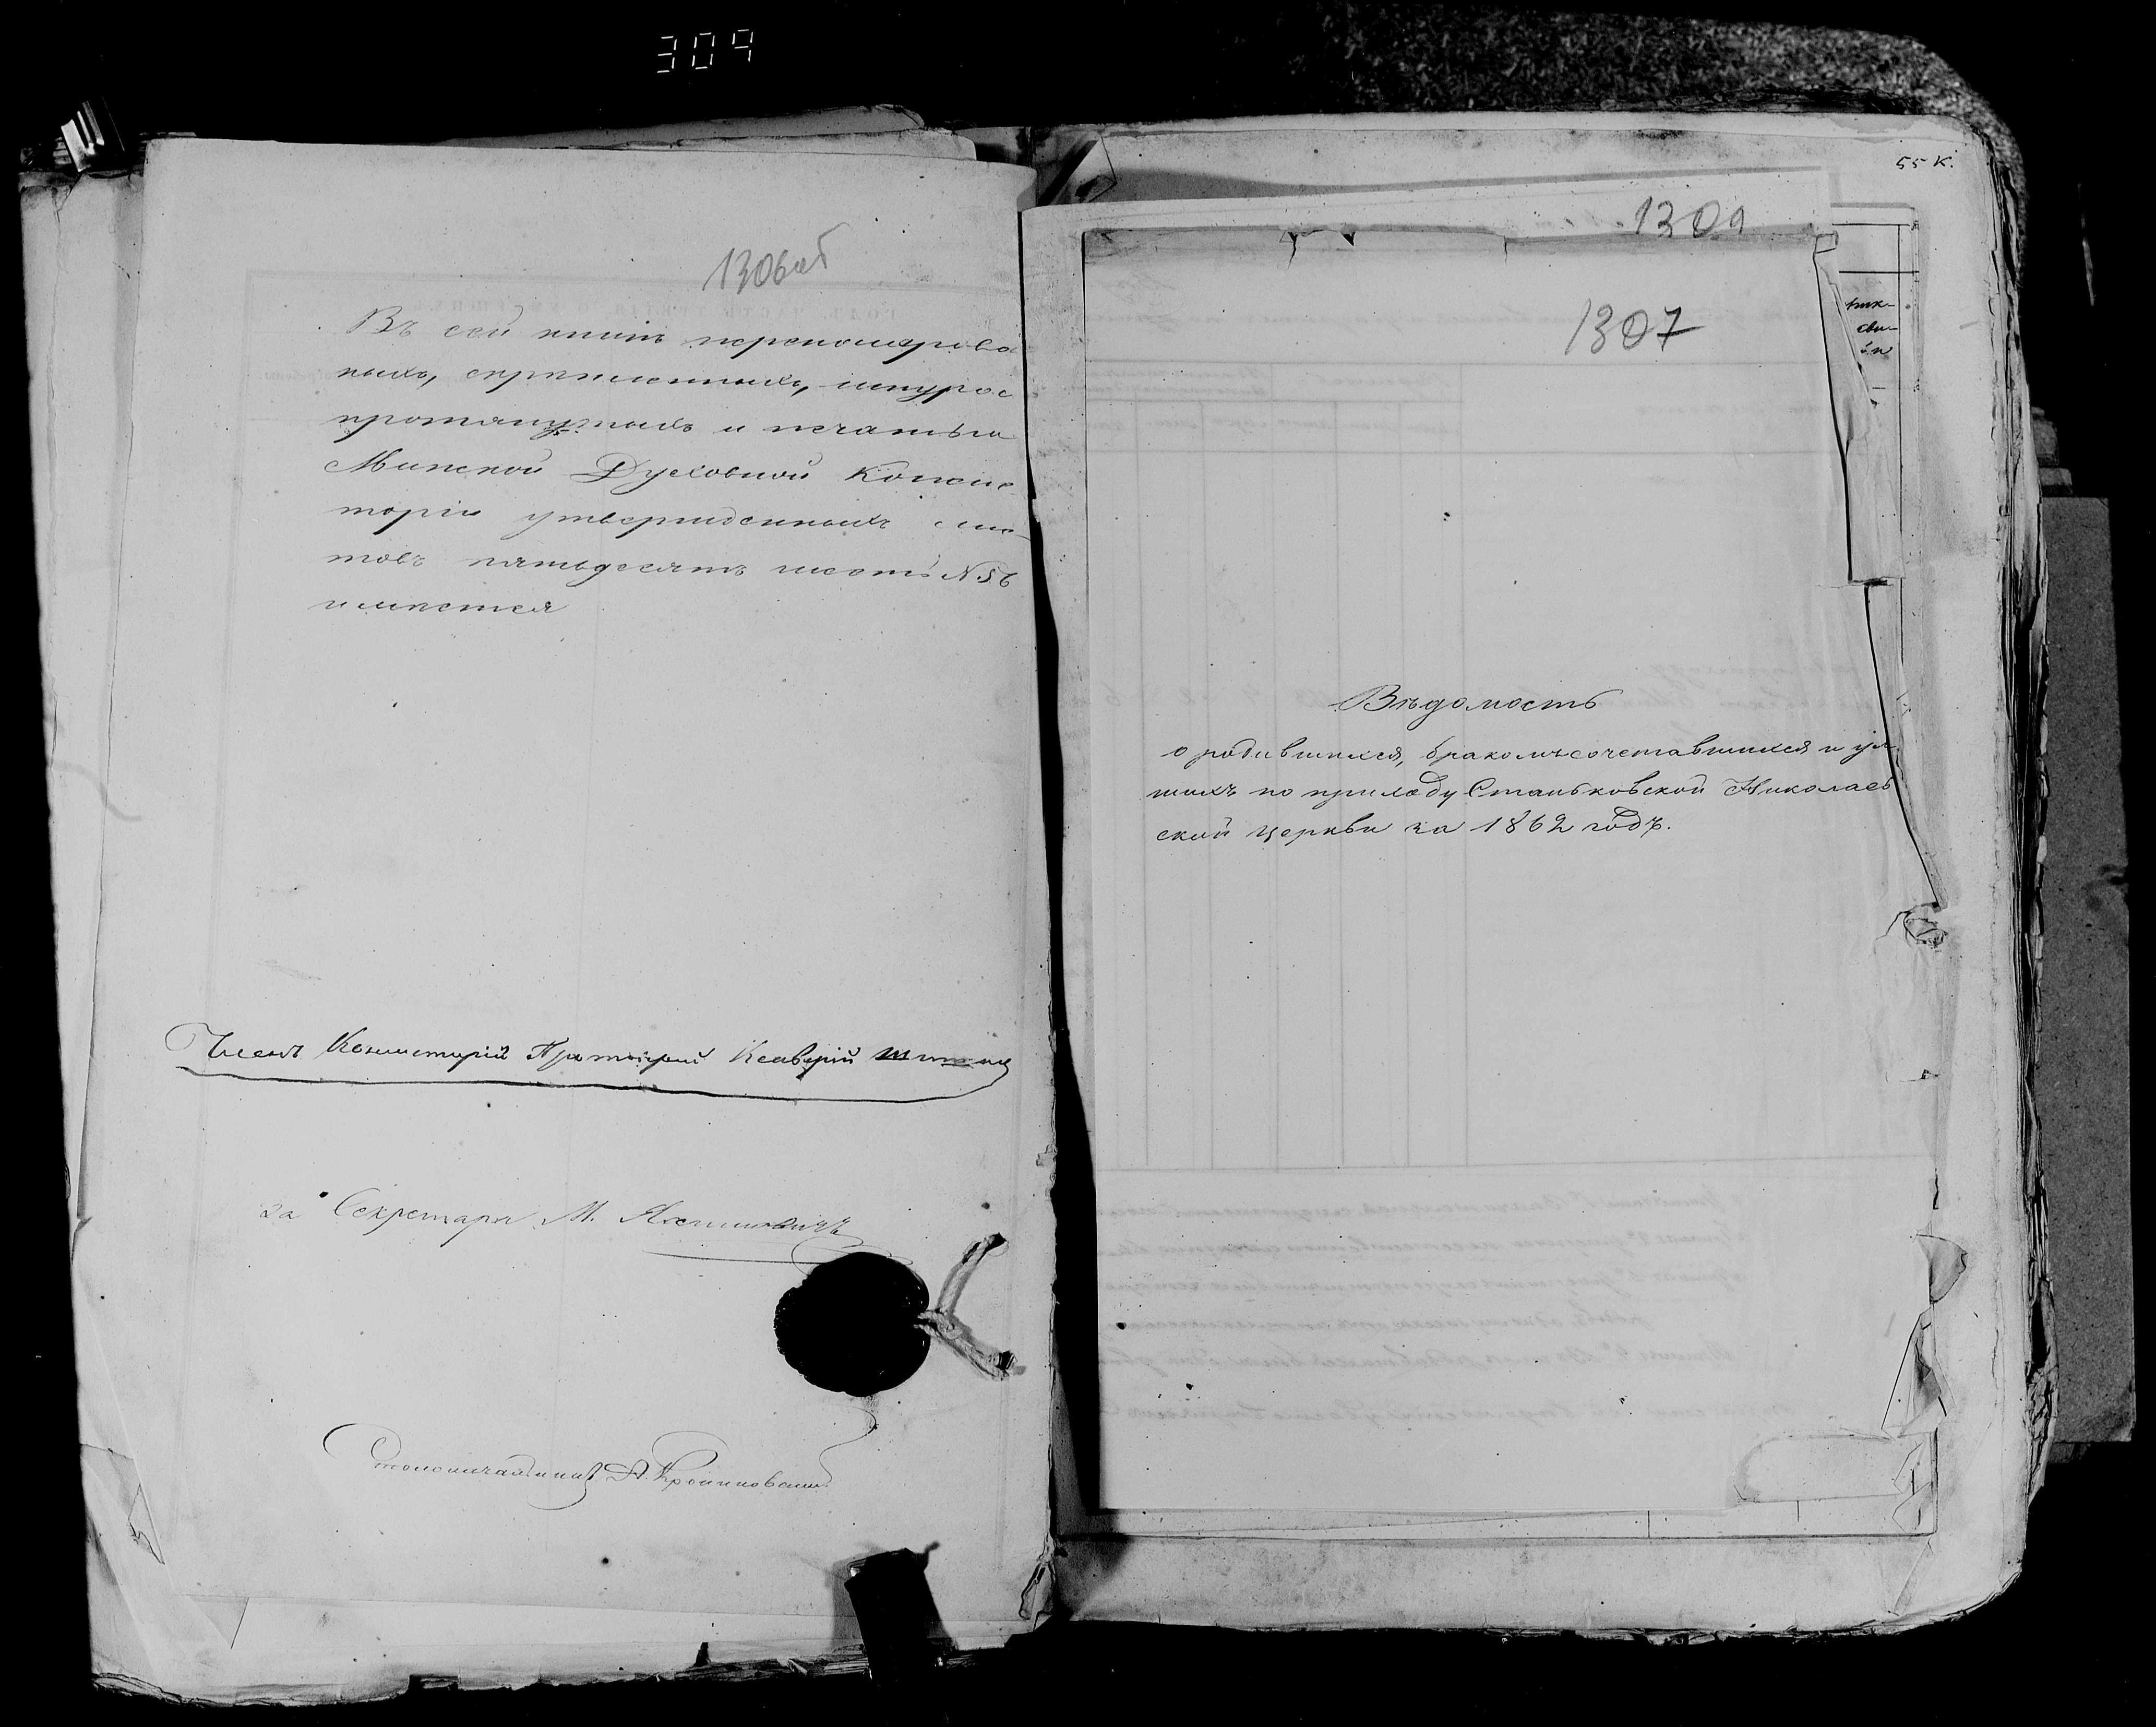 309
55 К.
1306об
Въ сей книгѣ перенумерова
ныхъ, скрѣпленныхъ, шнуром
протянутыхъ и печатью
Минской Духовной Консис
торіи утвержденныхъ лис
товъ пятьдесятъ шесть N. 56
имѣется
Членъ Консисторіи Протоіерей Ксаверій
За Секретаря М.
Столоначальникъ А.
1309
1307
Вѣдомость
о родившихся, бракомъ сочетавшихся и ум
шихъ по приходу Станьковской Николаев
ской церкви за 1862 годъ.